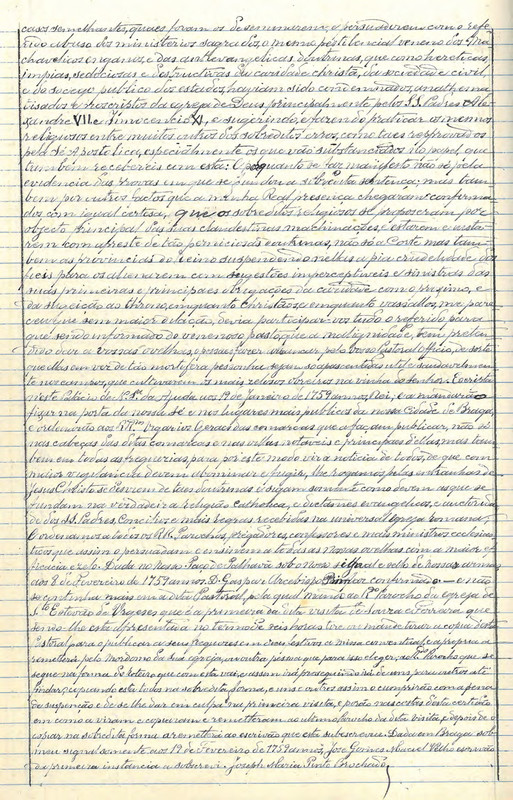 casos semelhantes, quaes foram os de se munirem, e persuadirem com o refe-
rido abuso dos ministerios sagrados, o mesmo pestilencial veneno dos Ma-
chavelicos enganos, e das anti-evangelicas doutrinas, que como hereticas,
impias, sediciosas e destructivas da caridade christã, da sociedade civil,
e do socego publico dos estados, haviam sido condemnadas, anathema-
tisadas e proscriptas da egreja de Deus, principalmente pelos S.S. Padres Ale-
xandre VII e Innocencio XI, e sugerindo, e fazendo praticar os mesmos
religiosos entre muitos outros dos sobreditos erros, como taes reprovados
pela Sé Apostolica, especialmente os que vão substanciados no papel, que
tambem recebereis com esta: O porquanto se faz manifesto não só pela
evidencia das provas em que se fundou a sobredita sentença; mas tam-
bem por outros factos que a minha Real presença chegaram confirma-
dos com igual certesa, que os sobreditos religiosos se proposeram por
objecto principal das suas clandestinas machinações, e estarem e insta-
rem com a peste de tão perniciosas doutrinas, não só a Corte mas tam-
bem as provincias do Reino suspendendo nellas a pia credulidade dos
fieis para os alienarem com sugestões imperceptiveis e sinistras das
suas primeiras e principaes obrigações da caridade com o proximo, e
da sugeição ao throno, em quanto christãos e em quanto vassallos, me pa-
receu que sem maior dilação, devia participar-vos tudo o referido para
que sendo informado do venenoso pasto, que a malignidade, tem preten-
dido dar a vossas ovelhas, possaes fazer
que ellas em vez de tão mortifera peçonha sejam so apascentadas util e saudavelmen-
te nos campos, que cultivarem os mais zelosos obreiros na vinha do Senhor. Escripta
neste Palacio de N.Sª. da Ajuda aos 19 de Janeiro de 1759 annos, Rei, e a mandarão
fixar na porta da nossa Sé e nos lugares mais publicos da nossa Cidade de Braga,
e ordenarão aos Vigarios Geraes das comarcas que a façam publicar, não só
nas cabeças das ditas comarcas e nas villas notaveis e principaes dellas mas tam-
bem em todas as freguezias para por este modo vir a noticia de todos, de que com
maior vigilancia devem abominar e fugir, lhe rogamos pelas entranhas de
Jesus Christo se desviem de taes doutrinas e sigam somente como devem as que se
fundam na verdadeira religião Catholica, e dictames evangelicos, e auctorida-
de dos SS. Padres Concilios e mais regras recebidas na universal Igreja romana;
Ordenamos a todos os RR. Parochos, pregadores, confessores e mais ministros ecclesias-
ticos que assim o persuadam e ensinem a todas as nossas ovelhas com a maior ef-
ficacia e zelo. Dada no nosso Paço de Palhavã sob o nosso signal e sello de nossas armas
aos 8 de Fevereiro de 1759 annos. D. Gaspar Arcebispo Primaz confirmado = e não
se continha mais em a dita Pastoral, pela qual mando ao Rdº Parocho da egreja de
S.to Estevão de Urgeses que é a primeira da dita visita
sendo-lhe esta apresentada no termo de seis horas tire ou mande tirar a copia desta
Pastoral para a publicar a seus freguezes em tres festivos á missa conventual, e a propria a
remetterá, pelo mordomo da sua egreja, ou outra pessoa que para isso eleger, ao Rº. Parocho que se
segue na forma do roteiro que com esta vai, e assim irá proseguindo irá de uns para outros até
findar, e quando esta todos na sobredita forma, e uns e outros assim o cumprirão com a pena
de suspenção e de se lhe dar em culpa na primeira visita, e porão nas costas desta certidão
em como a viram e copearam e remetteram ao ultimo Parocho da dita visita, e depois de o
copiar na sobredita forma a remetterá ao escrivão que esta subscreveu. Dada em Braga sob
meu signal somente aos 19 de Fevereiro de 1759 annos, Jose Gomes Maciel Velho escrivão
da primeira instancia a sobscrevi. Joseph Maria Pinto Brochado